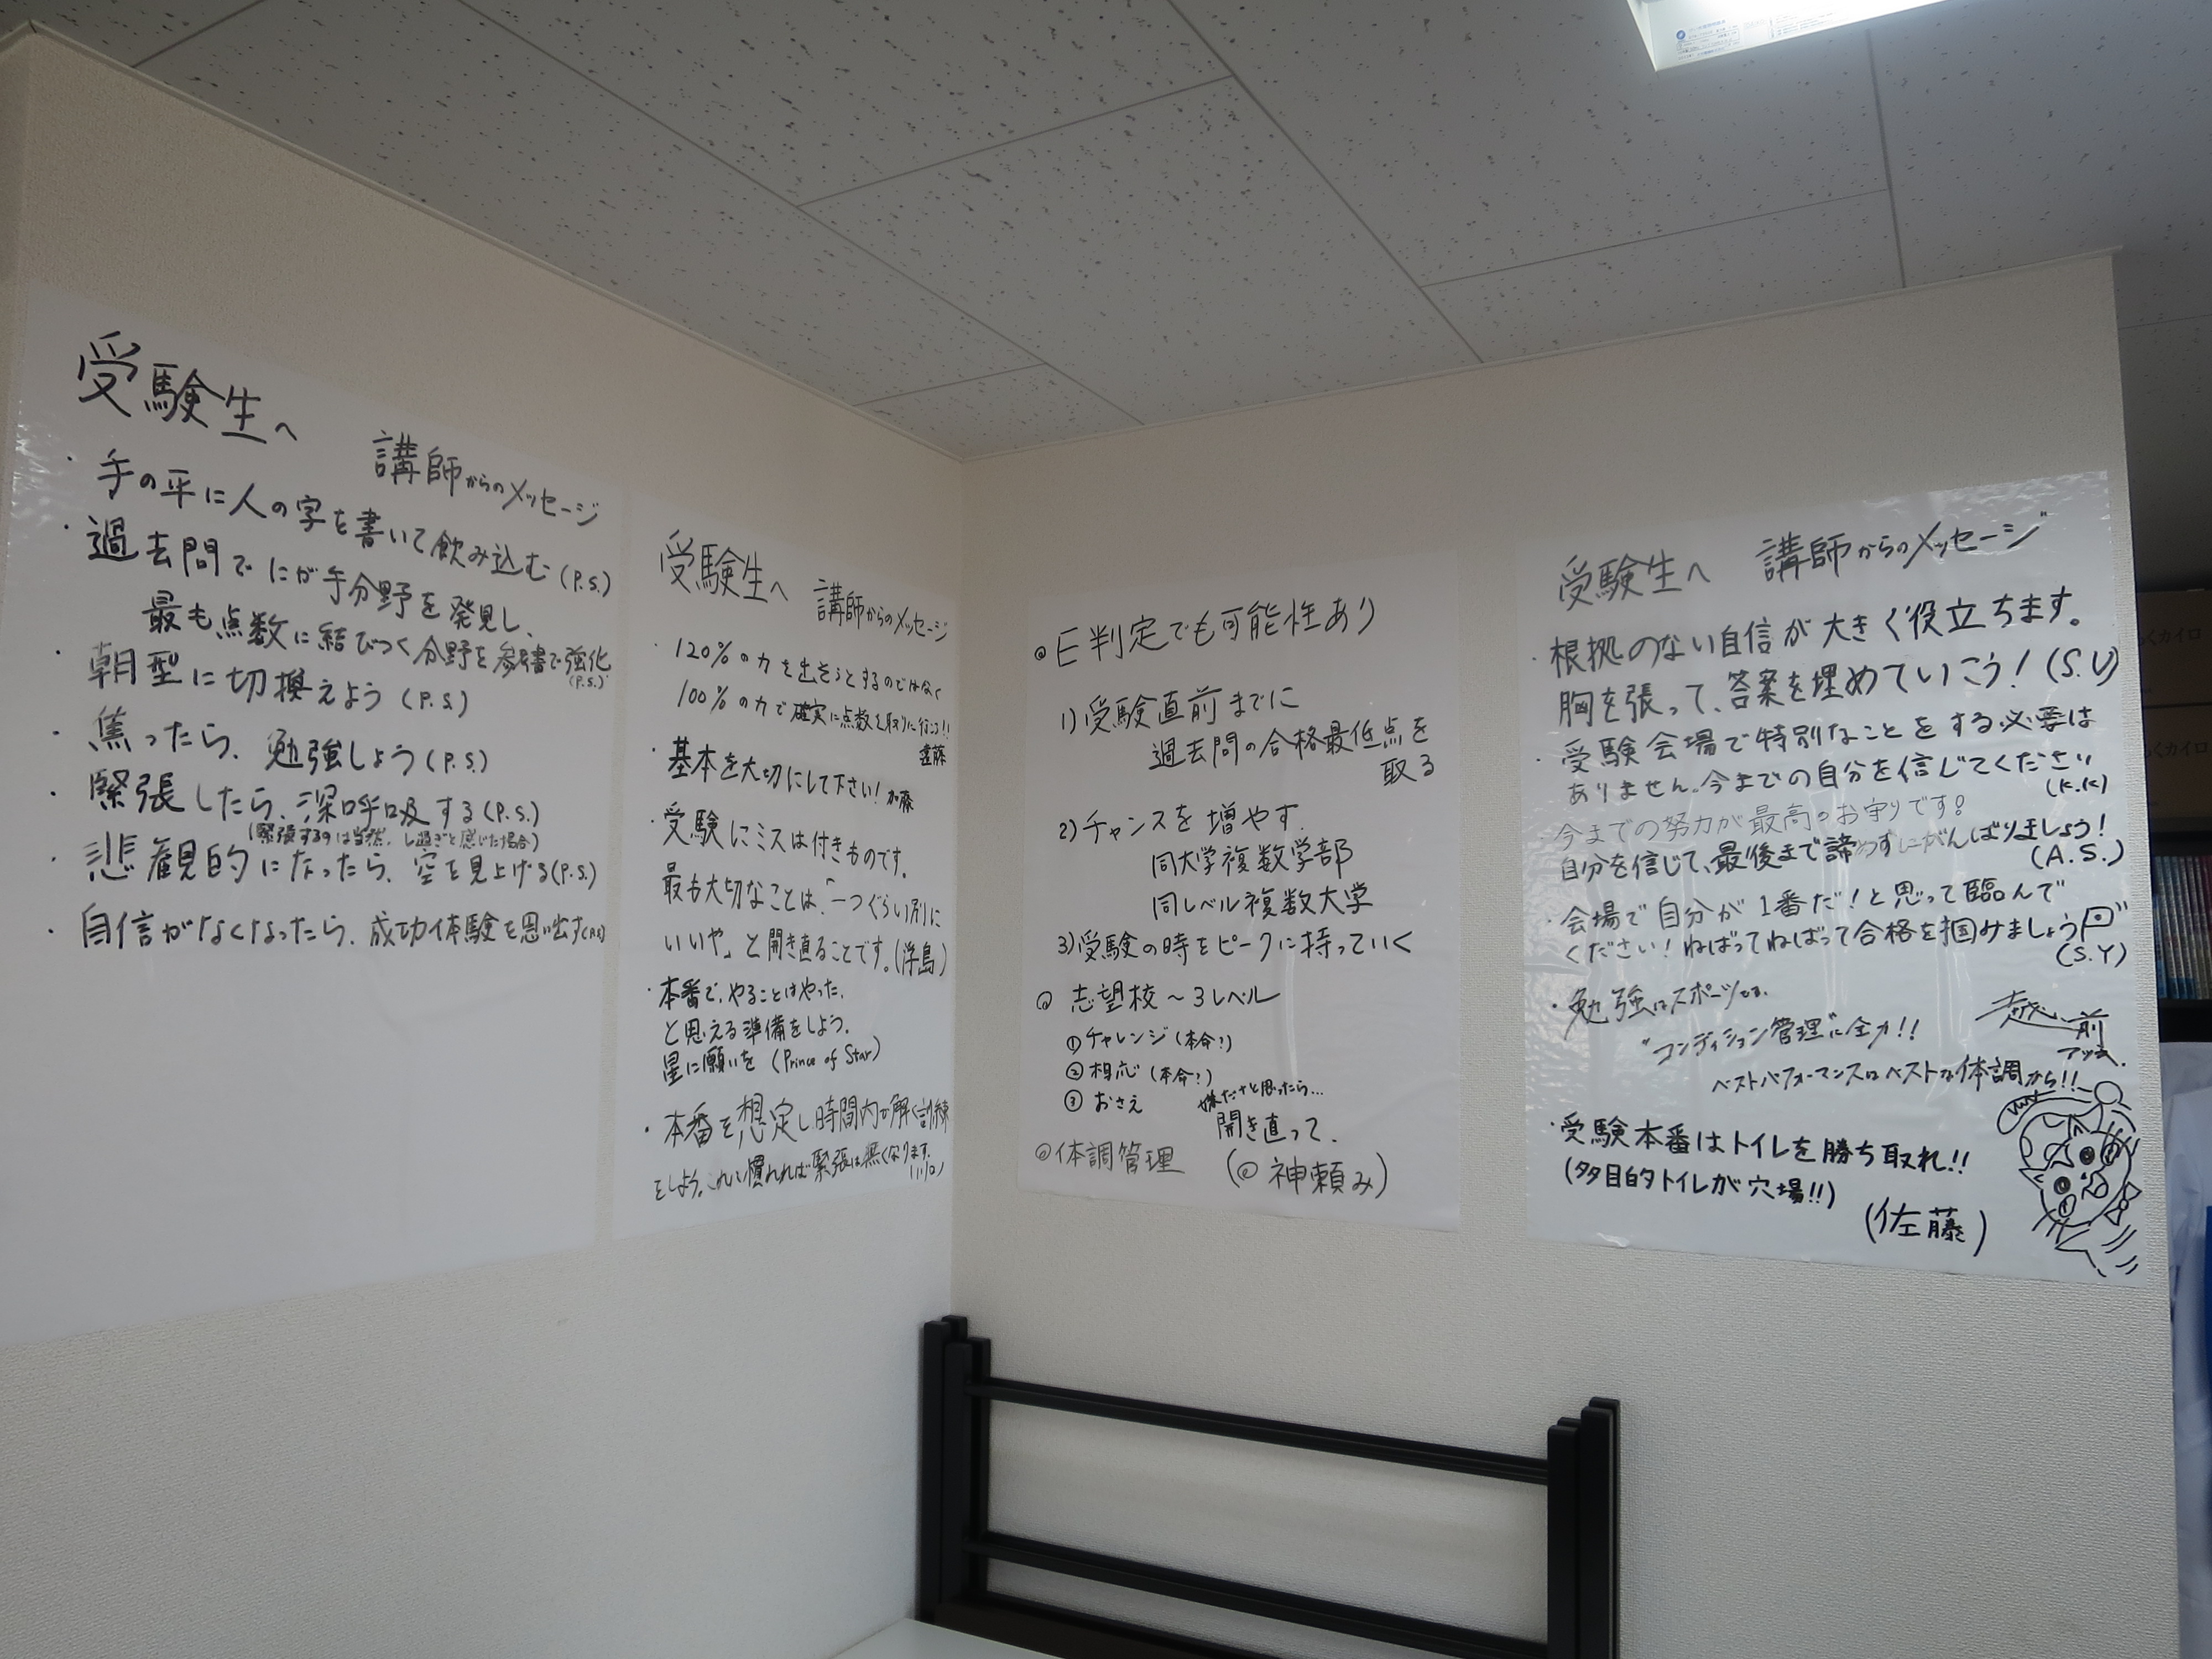 受験生へ
講師からのメッセージ
・手の平に人の字を書いて飲み込む(P.S.)
・過去問でにが手分野を発見し、
最も点数に結びつく分野を参考書で強化
(P.S.)
・朝型に切換えよう(P.S.)
・焦ったら、勉強しよう(P.S.)
・緊張したら、深呼吸する(P.S.)
(緊張するのは当然。し過ぎと感じた場合)
・悲観的になったら、空を見上げる(P.S.)
・自信がなくなったら、成功体験を思い出す(P.S.)
受験生へ 講師からのメッセージ
・120%の力を出そうとするのではなく
100%の力で確実に点数を取りに行こう!!
遠藤
・基本を大切にして下さい! 加藤
・受験にミスは付きものです。
最も大切なことは、「一つぐらい別に
いいや」と開き直ることです。(浮島)
・本番で、やることはやった、
と思える準備をしよう。
星に願いを (Prince of Star)
・本番を想定し時間内に解く訓練
をしよう。これに慣れれば緊張は無くなります。
◎E判定でも可能性あり
1)受験直前までに
過去問の合格最低点を
取る
2)チャンスを増やす
同大学複数学部
同レベル複数大学
3)受験の時をピークに持っていく
◎志望校〜3レベル
①チャレンジ(本命?)
②相応(本命?)
③おさえ
嫌だなと思ったら…
開き直って、
◎体調管理
(◎神頼み)
受験生へ 講師からのメッセージ
・根拠のない自信が大きく役立ちます。
胸を張って、答案を埋めていこう!(S.U)
・受験会場で特別なことをする必要は
ありません。今までの自分を信じてください
(K.K)
・今までの努力が最高のお守りです!
自分を信じて、最後まで諦めずにがんばりましょう!
(A.S.)
・会場で自分が1番だ!と思って臨んで
ください!ねばってねばって合格を掴みましょう
(S.Y)
・勉強はスポーツである。
"コンディション管理"に全力!!
越前
ベストパフォーマンスはベストな体調から!!
・受験本番はトイレを勝ち取れ!!
(多目的トイレが穴場!!)
(佐藤)